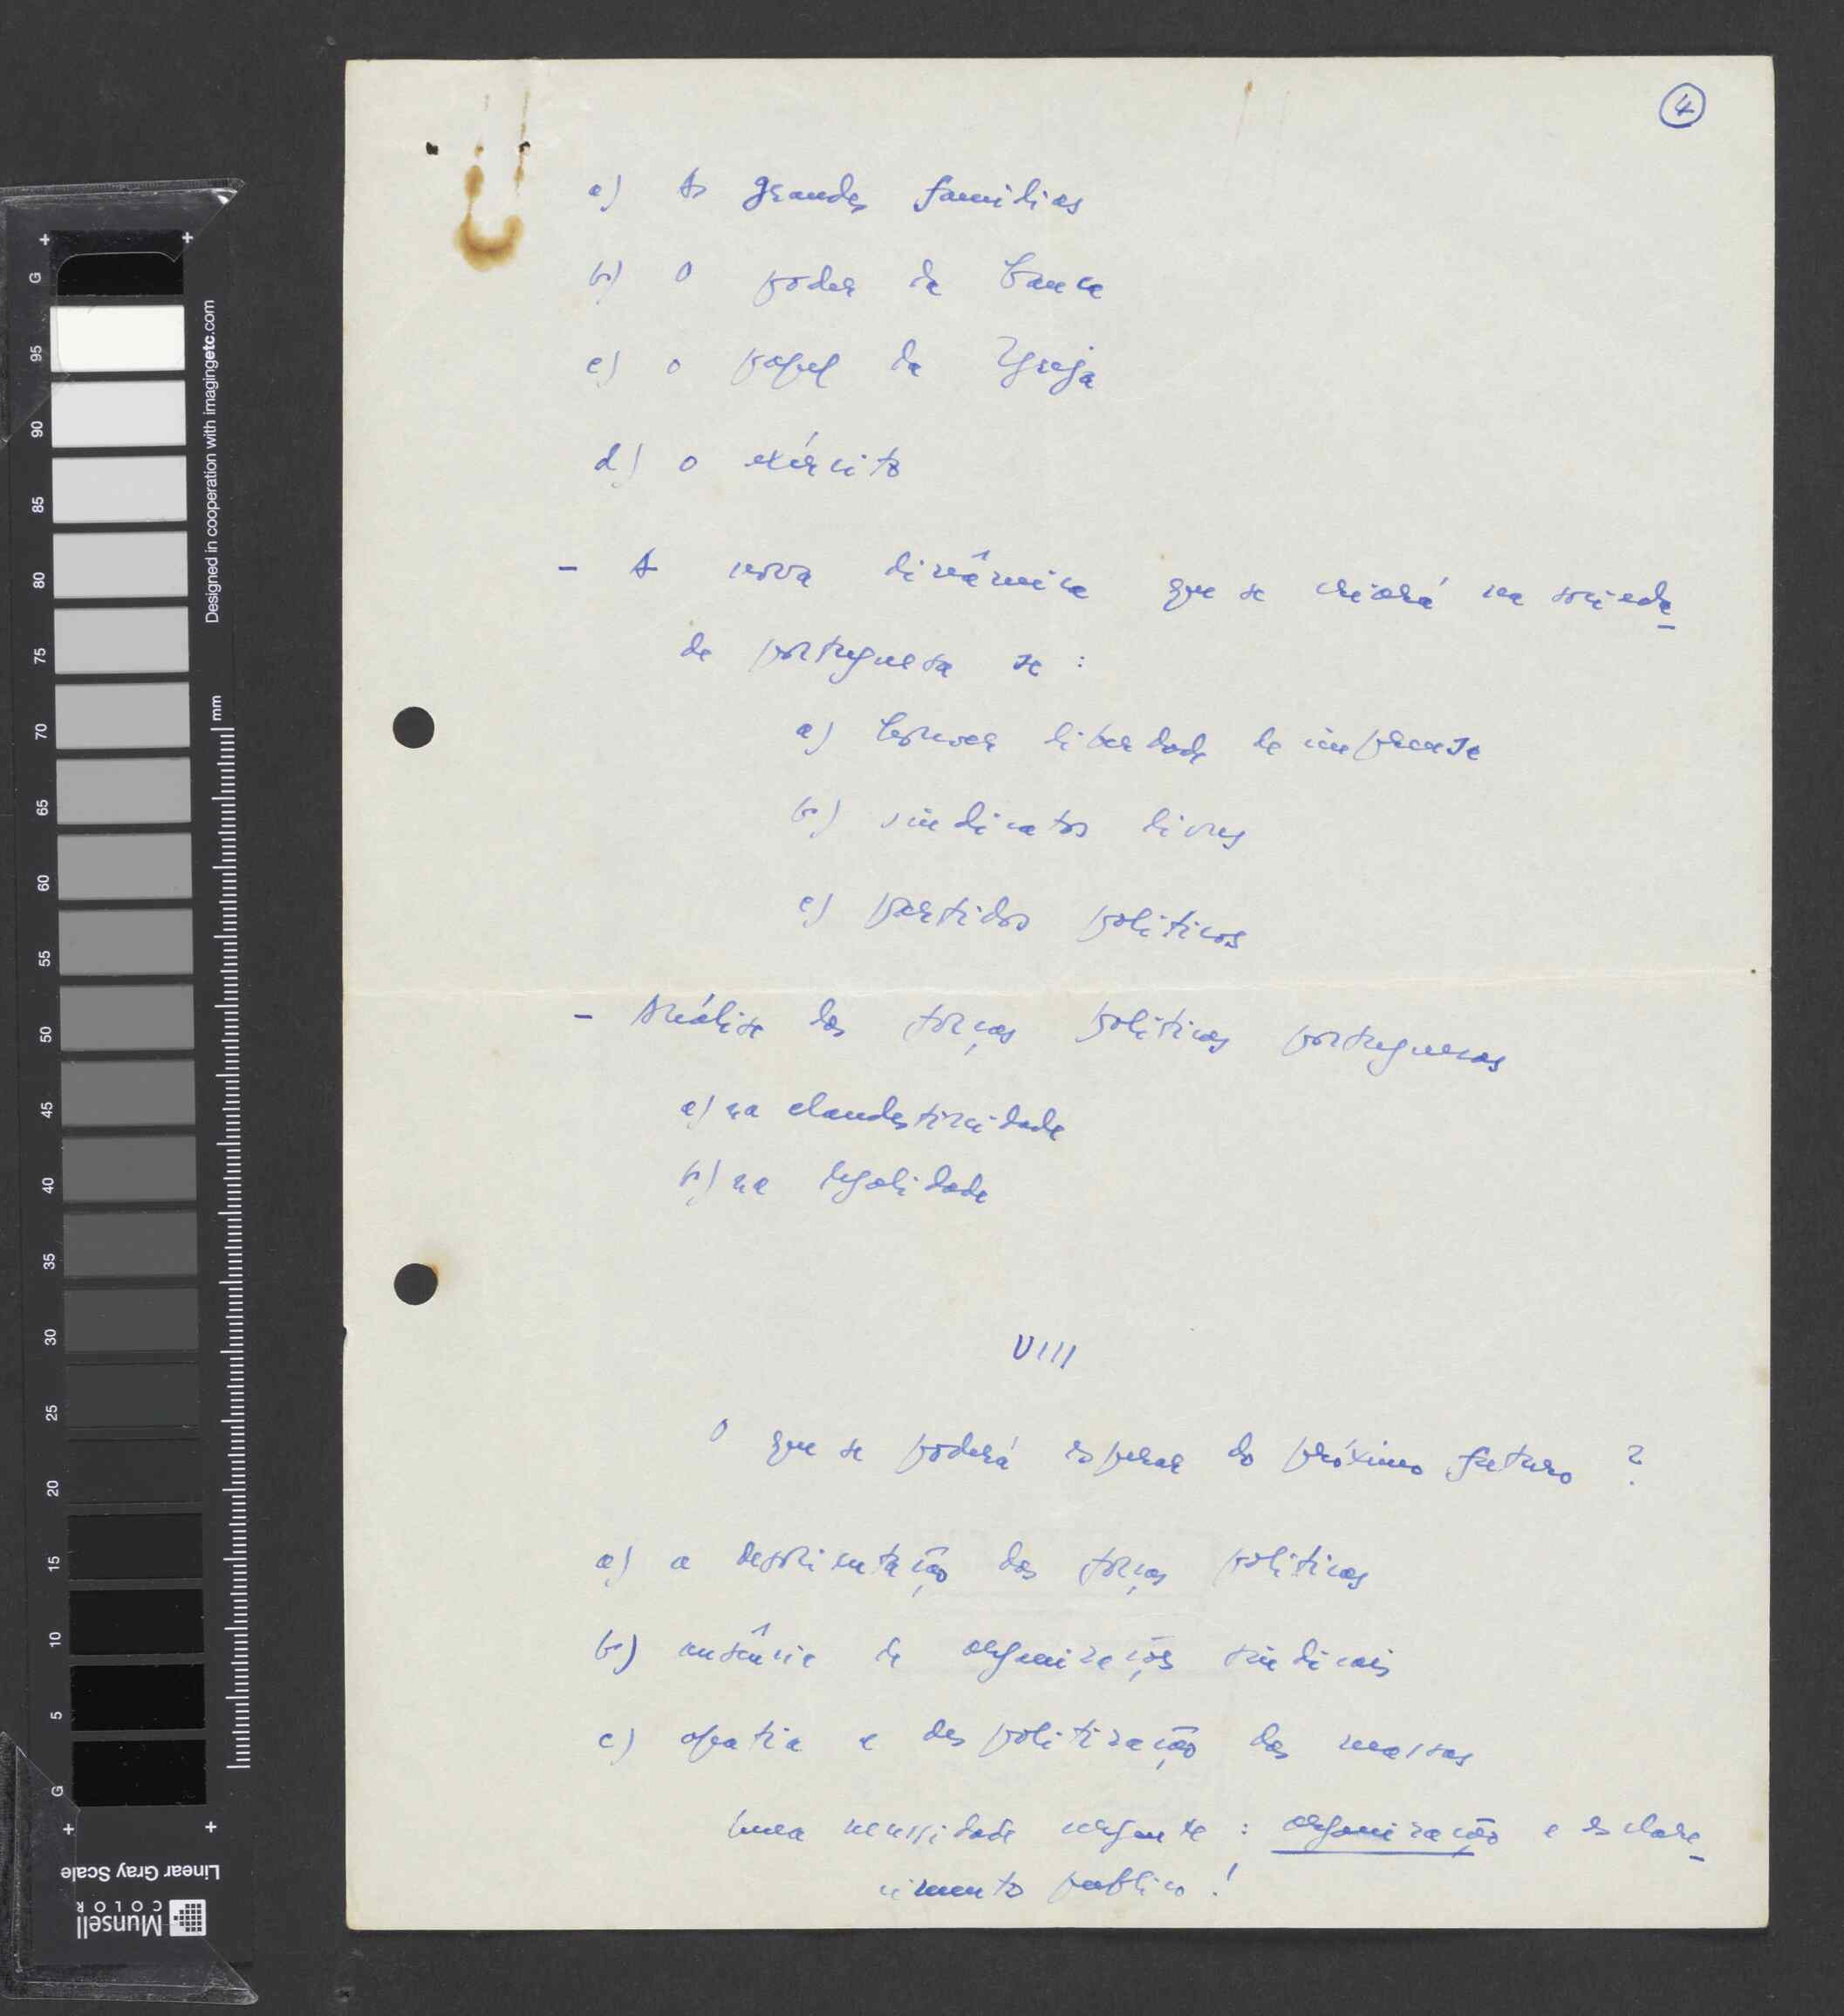 4
a) As grandes familias
b) O poder da banca
c) o papel da Igreja
d) o exército
- A nova dinâmica que se criará na socieda
de portuguesa se :
a) houver liberdade de imprensa
b) sindicatos livres
c) partidos politicos
- Análise das forças politicas portuguesas
a) na clandestinidade
b) na legalidade
VIII
O que se poderá esperar do próximo futuro ?
a) a desorientação das forças politicas
b) ausência de organizações sindicais
c) apatia e despolitização das massas
Uma necessidade urgente : organização e esclare
cimento publico !
G
95
90
85
80
75
70
65
60
55
50
45
40
35
30
25
20
15
10
5
G
mm
Designed in cooperation with imagingetc.com
Linear Gray Scale
Munsell
COLOR